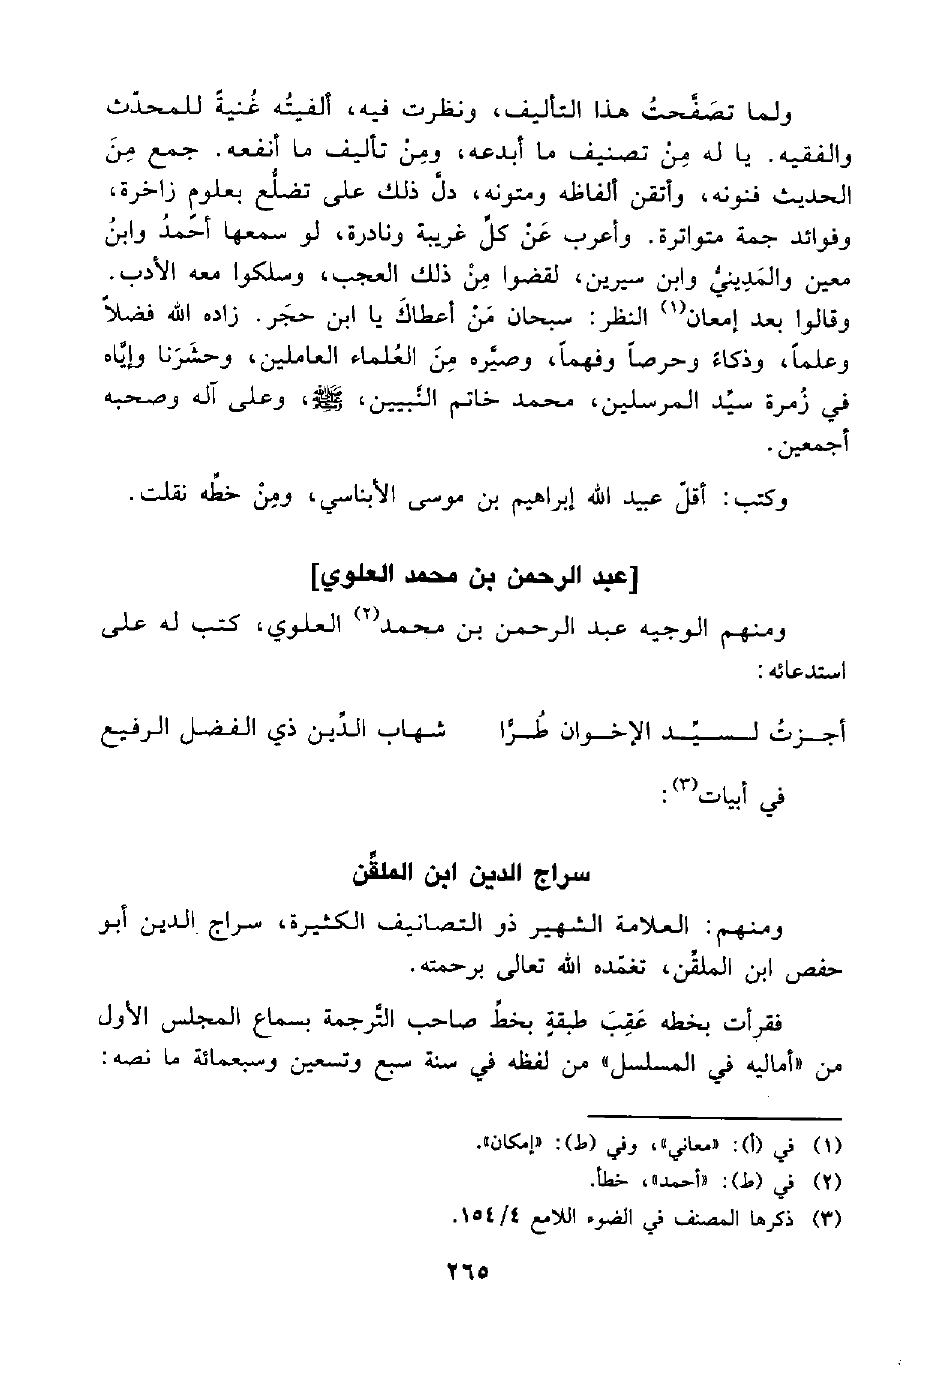 ولما تصَفَّحتُ هذا التأليف، ونظرت فيه، ألفيتُه غُنيةً للمحدّث
والفقيه. يا له مِنْ تصنيف ما أبدعه، ومِنْ تأليف ما أنفعه. جمع مِنَ
الحديث فنونه، وأتقن ألفاظه ومتونه، دلَّ ذلك على تضلُّع بعلوم زاخرة،
وفوائد جمة متواترة. وأعرب عَنْ كلِّ غريبة ونادرة، لو سمعها أحمدُ وابنُ
معين والمَدِينيُّ وابن سيرين، لقضوا مِنْ ذلك العجب، وسلكوا معه الأدب.
وقالوا بعد إمعان(١) النظر: سبحان مَنْ أعطاكَ يا ابن حجَر. زاده الله فضلاً
وعلماً، وذكاءً وحرصاً وفهماً، وصيَّره مِنَ العُلماء العاملين، وحشَرَنا وإيَّاه
في زُمرة سيِّد المرسلين، محمد خاتم النَّبيين، ﷺ، وعلى آله وصحبه
أجمعين.
وكتب: أقلّ عبيد الله إبراهيم بن موسى الأبناسي، ومِنْ خطِّه نقلت.
[عبد الرحمن بن محمد العلوي]
ومنهم الوجيه عبد الرحمن بن محمد(٢) العلوي، كتب له على
استدعائه:
أجـزتُ لـسـيِّـد الإخـوان طُرًّا شـهاب الدِّين ذي الفـضل الرفيع
في أبيات(٣):
سراج الدين ابن الملقِّن
ومنهم: العلامة الشهير ذو التصانيف الكثيرة، سراج الدين أبو
حفص ابن الملقِّن، تغمّده الله تعالى برحمته.
فقرأت بخطه عَقِبَ طبقةٍ بخطِّ صاحب التَّرجمة بسماع المجلس الأول
من «أماليه في المسلسل» من لفظه في سنة سبع وتسعين وسبعمائة ما نصه:
(١) في (أ): «معاني»، وفي (ط): «إمكان».
(٢) في (ط): «أحمد»، خطأ.
(٣) ذكرها المصنف في الضوء اللامع ٤/ ١٥٤.
٢٦٥